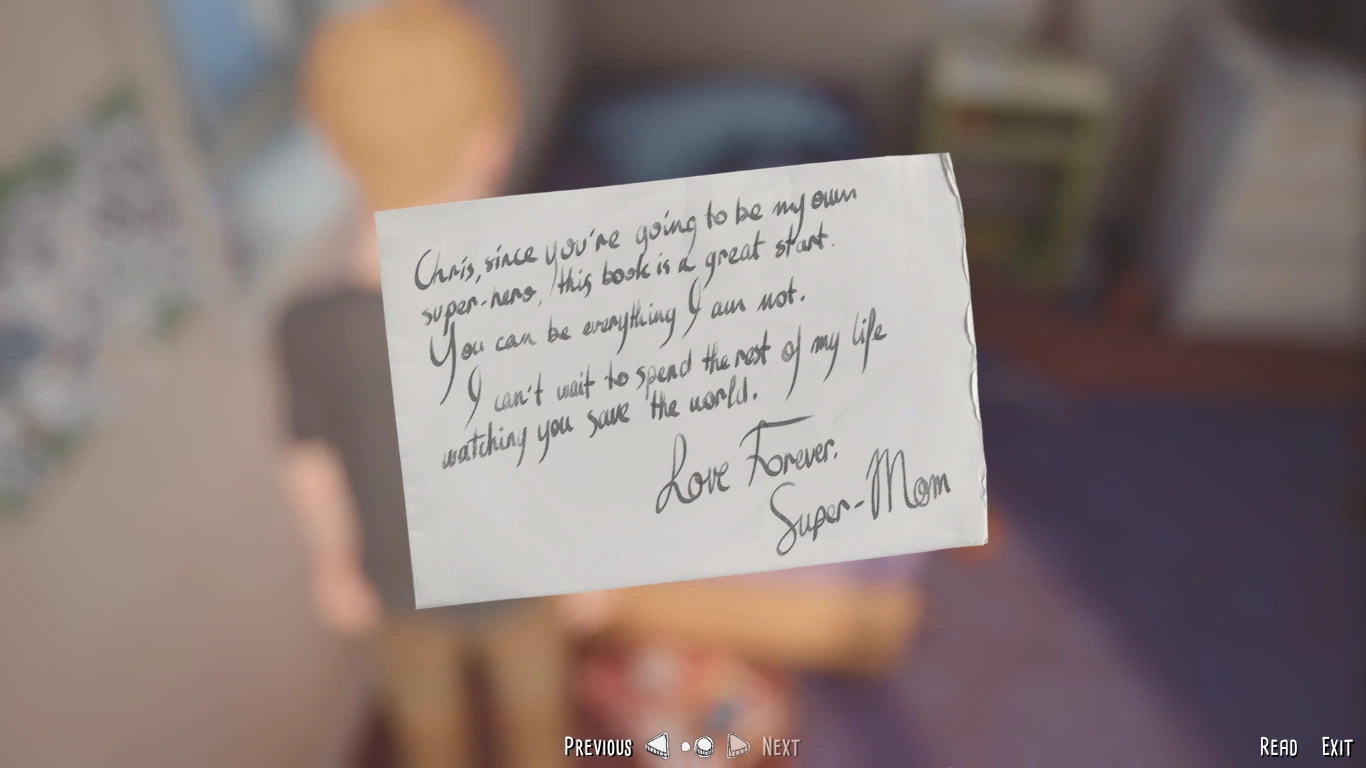 Chris, since you're going to be my own
super-hero, this book is a great start.
You can be everything I am not.
I can't wait to spend the rest of my life
watching you save the world.
Love Forever.
Super-Mom
Previous
Next
Read
Exit